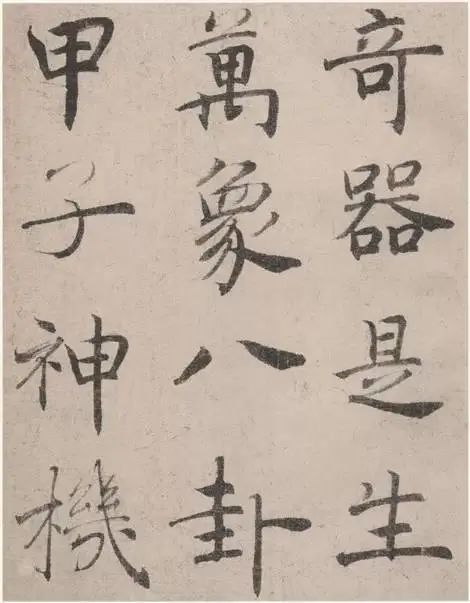 奇器是生
萬象八卦
甲子神機